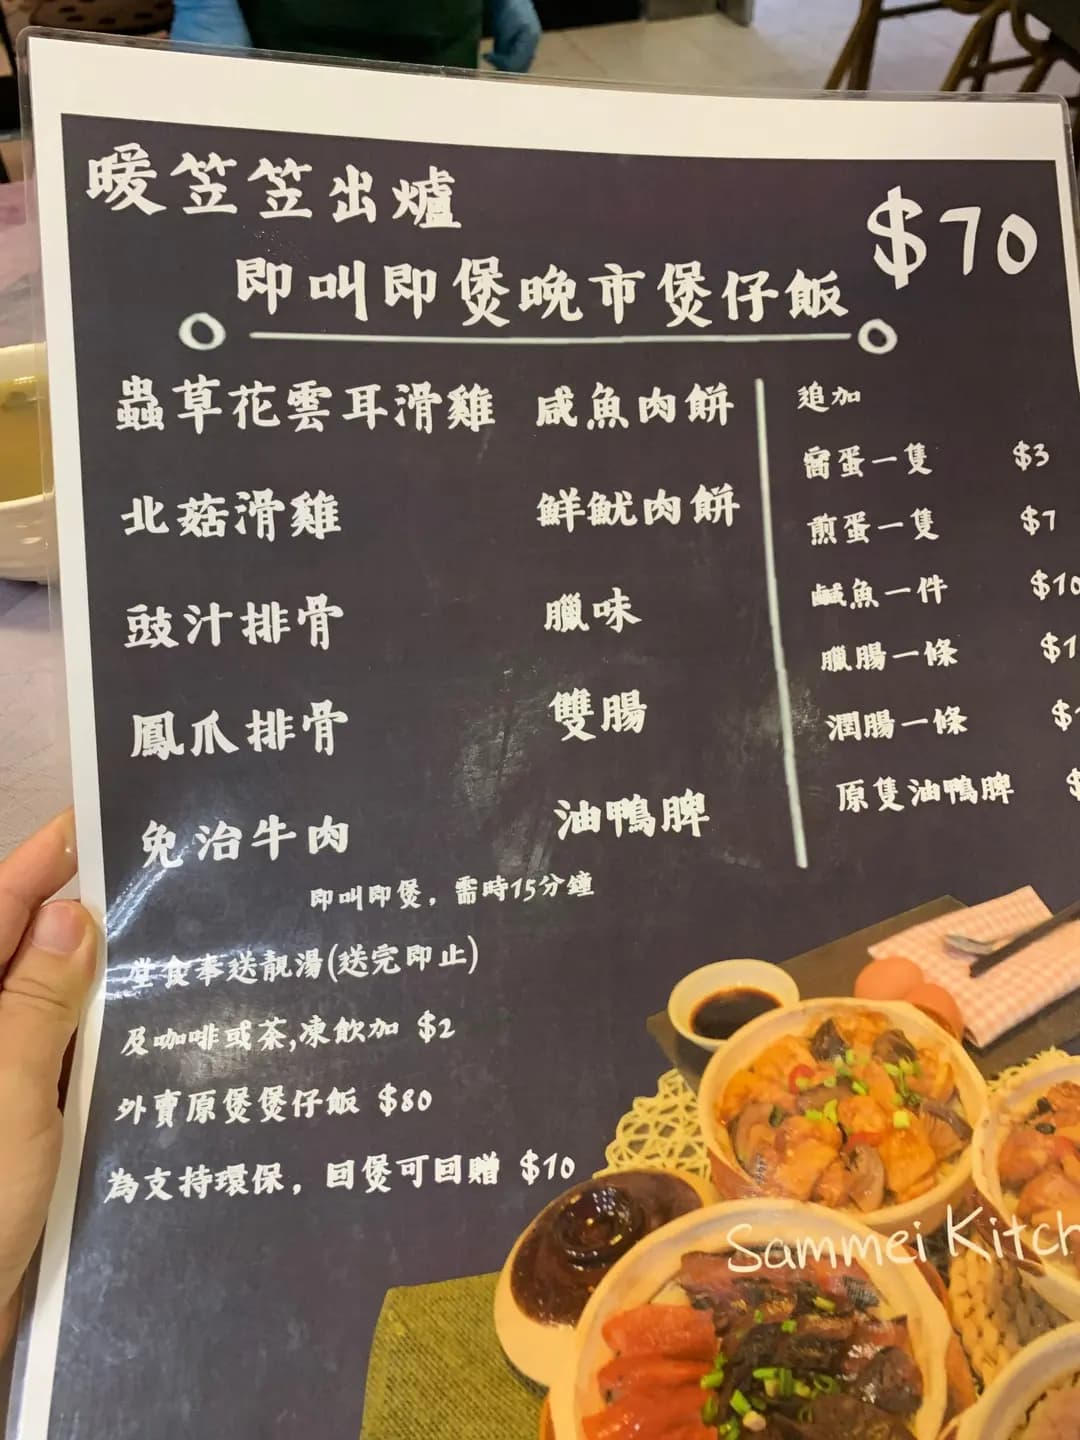 暖笠笠出爐
$70
即叫即煲晚市煲仔飯
蟲草花雲耳滑雞
北菇滑雞
豉汁排骨
鳳爪排骨
免治牛肉
咸魚肉餅
鮮魷肉餅
臘味
雙腸
油鴨脾
追加
窩蛋一隻 $3
煎蛋一隻 $7
鹹魚一件 $10
臘腸一條 $1
潤腸一條 $
原隻油鴨脾 $
即叫即煲，需時15分鐘
堂食奉送靚湯(送完即止)
及咖啡或茶,凍飲加 $2
外賣原煲煲仔飯 $80
為支持環保，回煲可回贈 $10
Sammei Kitch